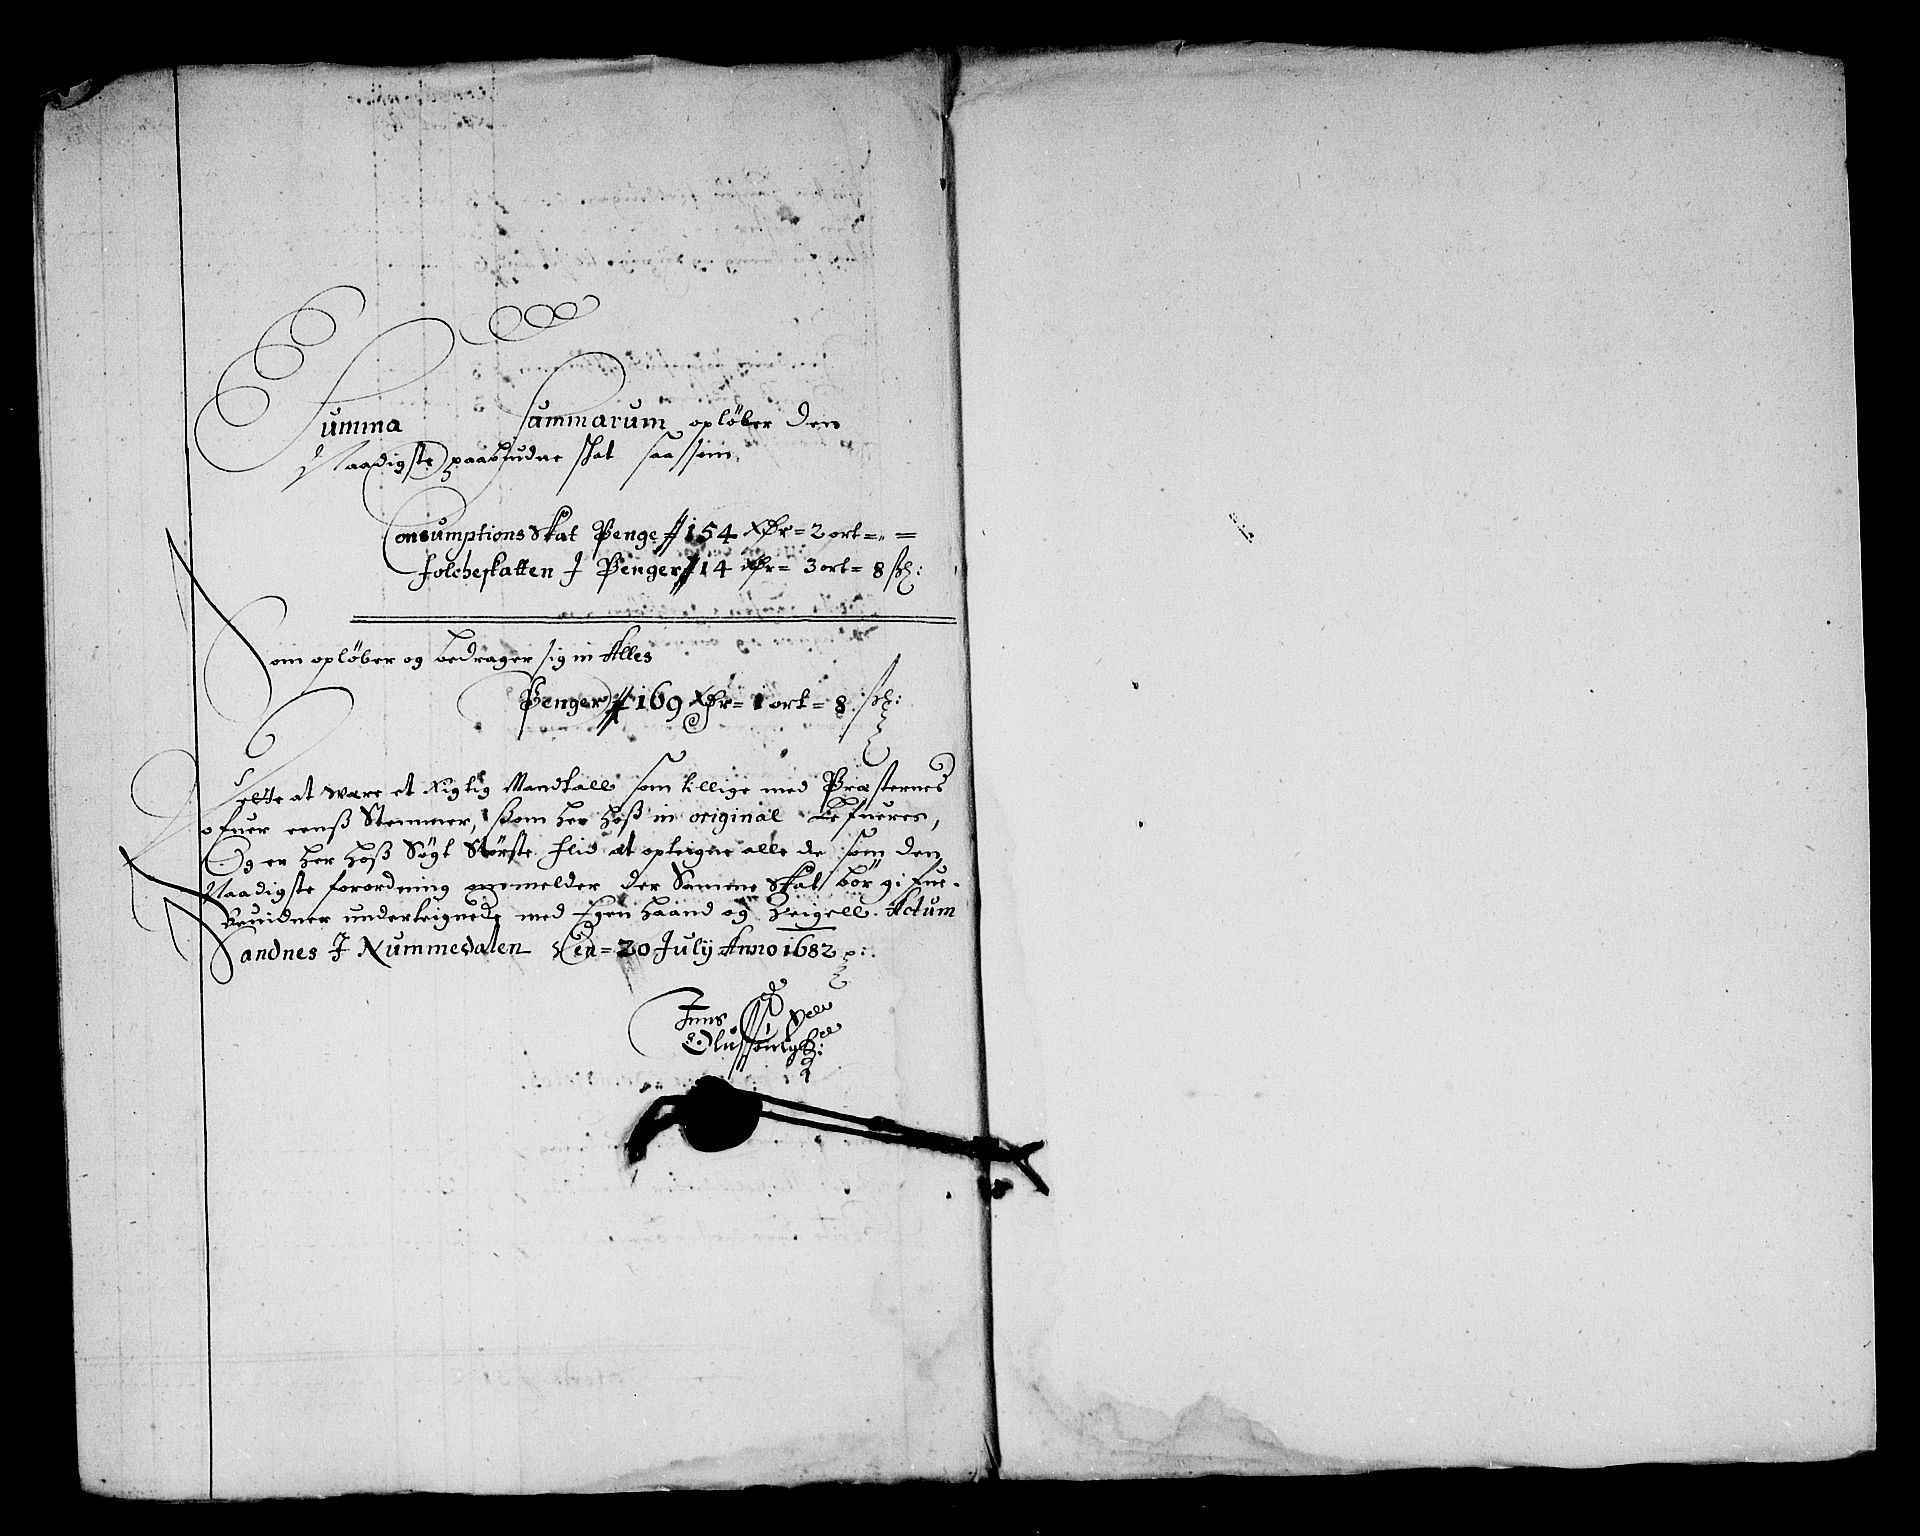 Summa Summarum opløber den
Naadigste paabudne skat saasom,
Consumptions Skat Penge # 154 Rdr = 2 ort = „ =
folcheskatten J Penger # 14 Rdr = 3 ort = 8 sk:
Som opløber og bedrager sig in Alles
Penger # 169 Rdr = 1 ort = 8 sk:
Dette at were et Rigtig Mandtall som tillige med Præsternes
ofuer eenß Stemmer, som her hoß in original Lefueres,
Og er her hoß Søgt Største flid at opteigne alle de som den
Naadigste forordning ommelder der Samme Skat bør gifue.
Beuidner underteignede med Egen haand og Zeigell. Actum
Sandnes J Nummedalen den = 20 July Anno 1682 p:.
Jens
Olussen